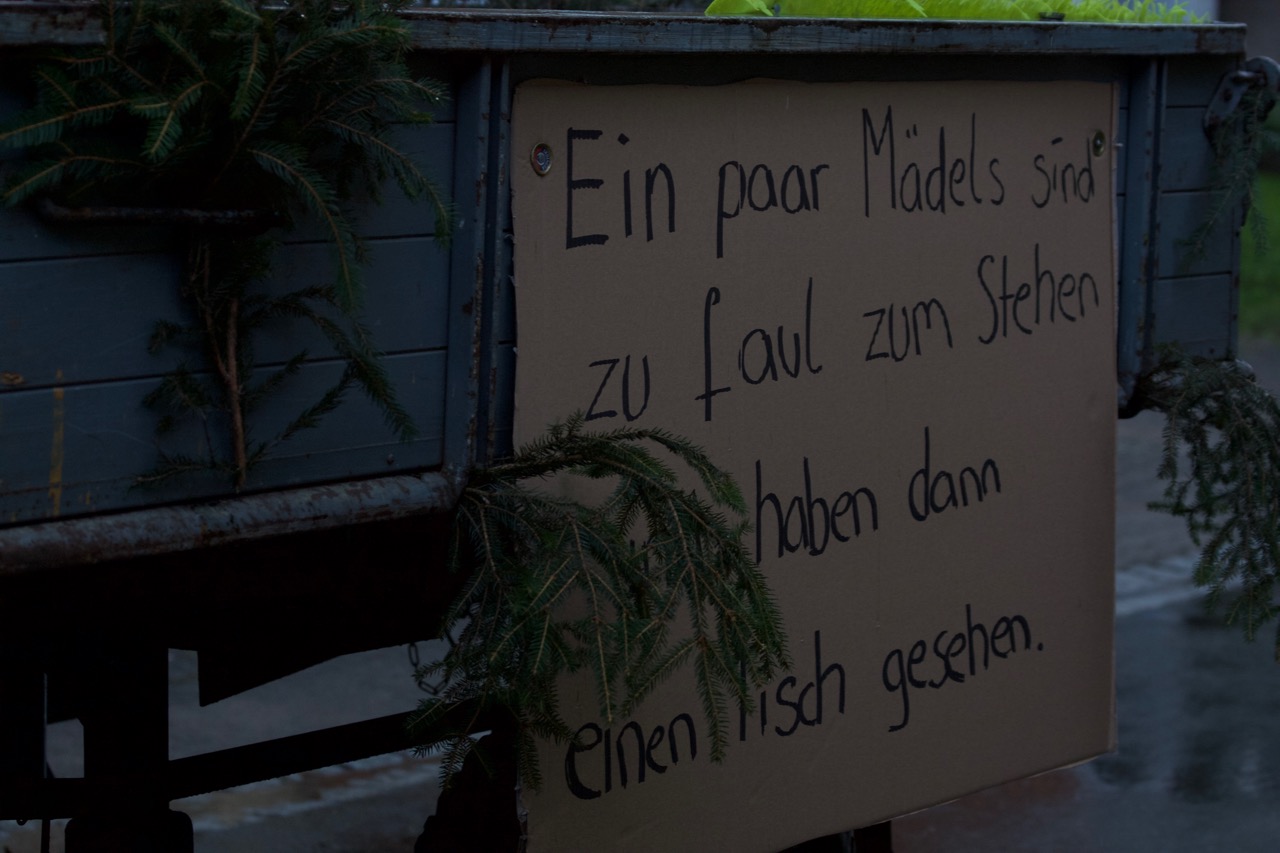 Ein paar Mädels sind
zu faul zum Stehen
haben dann
einen Tisch gesehen.